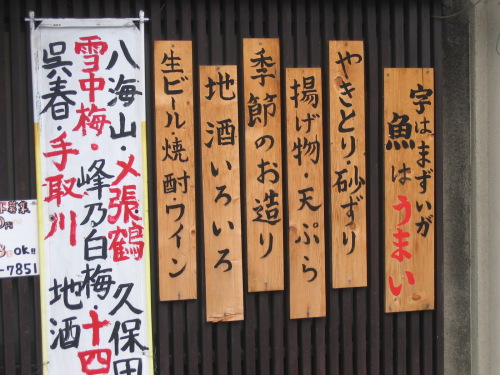 字はまずいが
魚はうまい
やきとり・砂ずり
揚げ物・天ぷら
季節のお造り
地酒いろいろ
生ビール・焼酎・ワイン
八海山・〆張鶴 久保田
雪中梅・峰乃白梅・十四
呉春・手取川 地酒
募集
OK!!
-7851